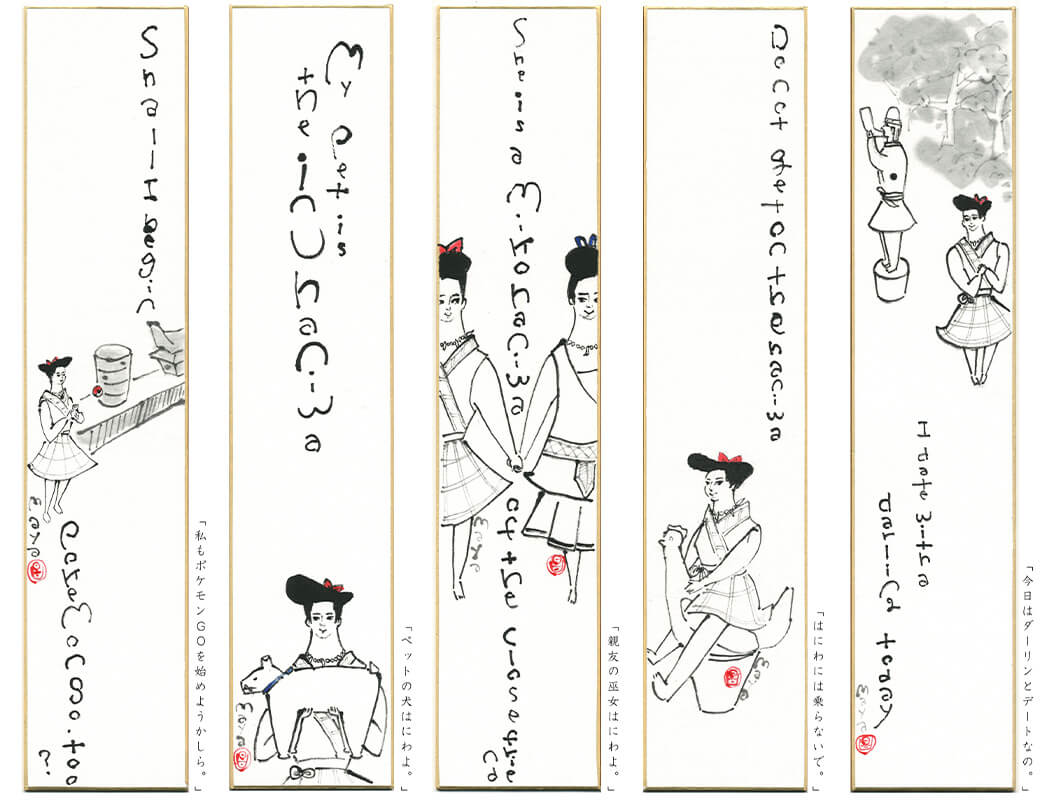 Shall I begin
PokemonGo.too
?
「私もポケモンGOを始めようかしら。」
My pet is
the inuhaniwa
「ペットの犬はにわよ。」
She is a Mikohaniwa
of the close frie
nd
「親友の巫女はにわよ。」
Do not get on the haniwa
「はにわには乗らないで。」
I date with a
Darling today
「今日はダーリンとデートなの。」